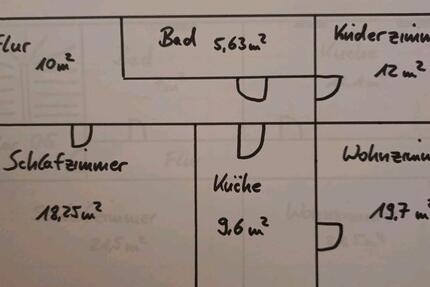 Flur
10 m²
Bad 5,63 m²
Kinderzimm
12 m²
Schlafzimmer
18,25 m²
Küche
9,6 m²
Wohnzimm
19,7 m²